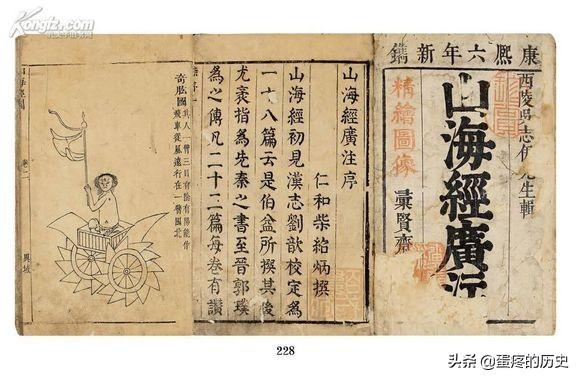 Kongfz.com
康熙六年新鐫
西陵吳志伊先生輯
山海經廣注
精繪圖像
彙賢齋
山海經廣注序
仁和柴紹炳撰
山海經初見漢志劉歆校定為
一十八篇云是伯益所撰其後
尤袤指為先秦之書至晉郭璞
為之傳凡二十二篇每卷有讚
奇肱國
其人一臂三目有陰有陽能作
飛車從風遠行在一臂國北
卷二
異域
228
头条 @蛋疼的历史